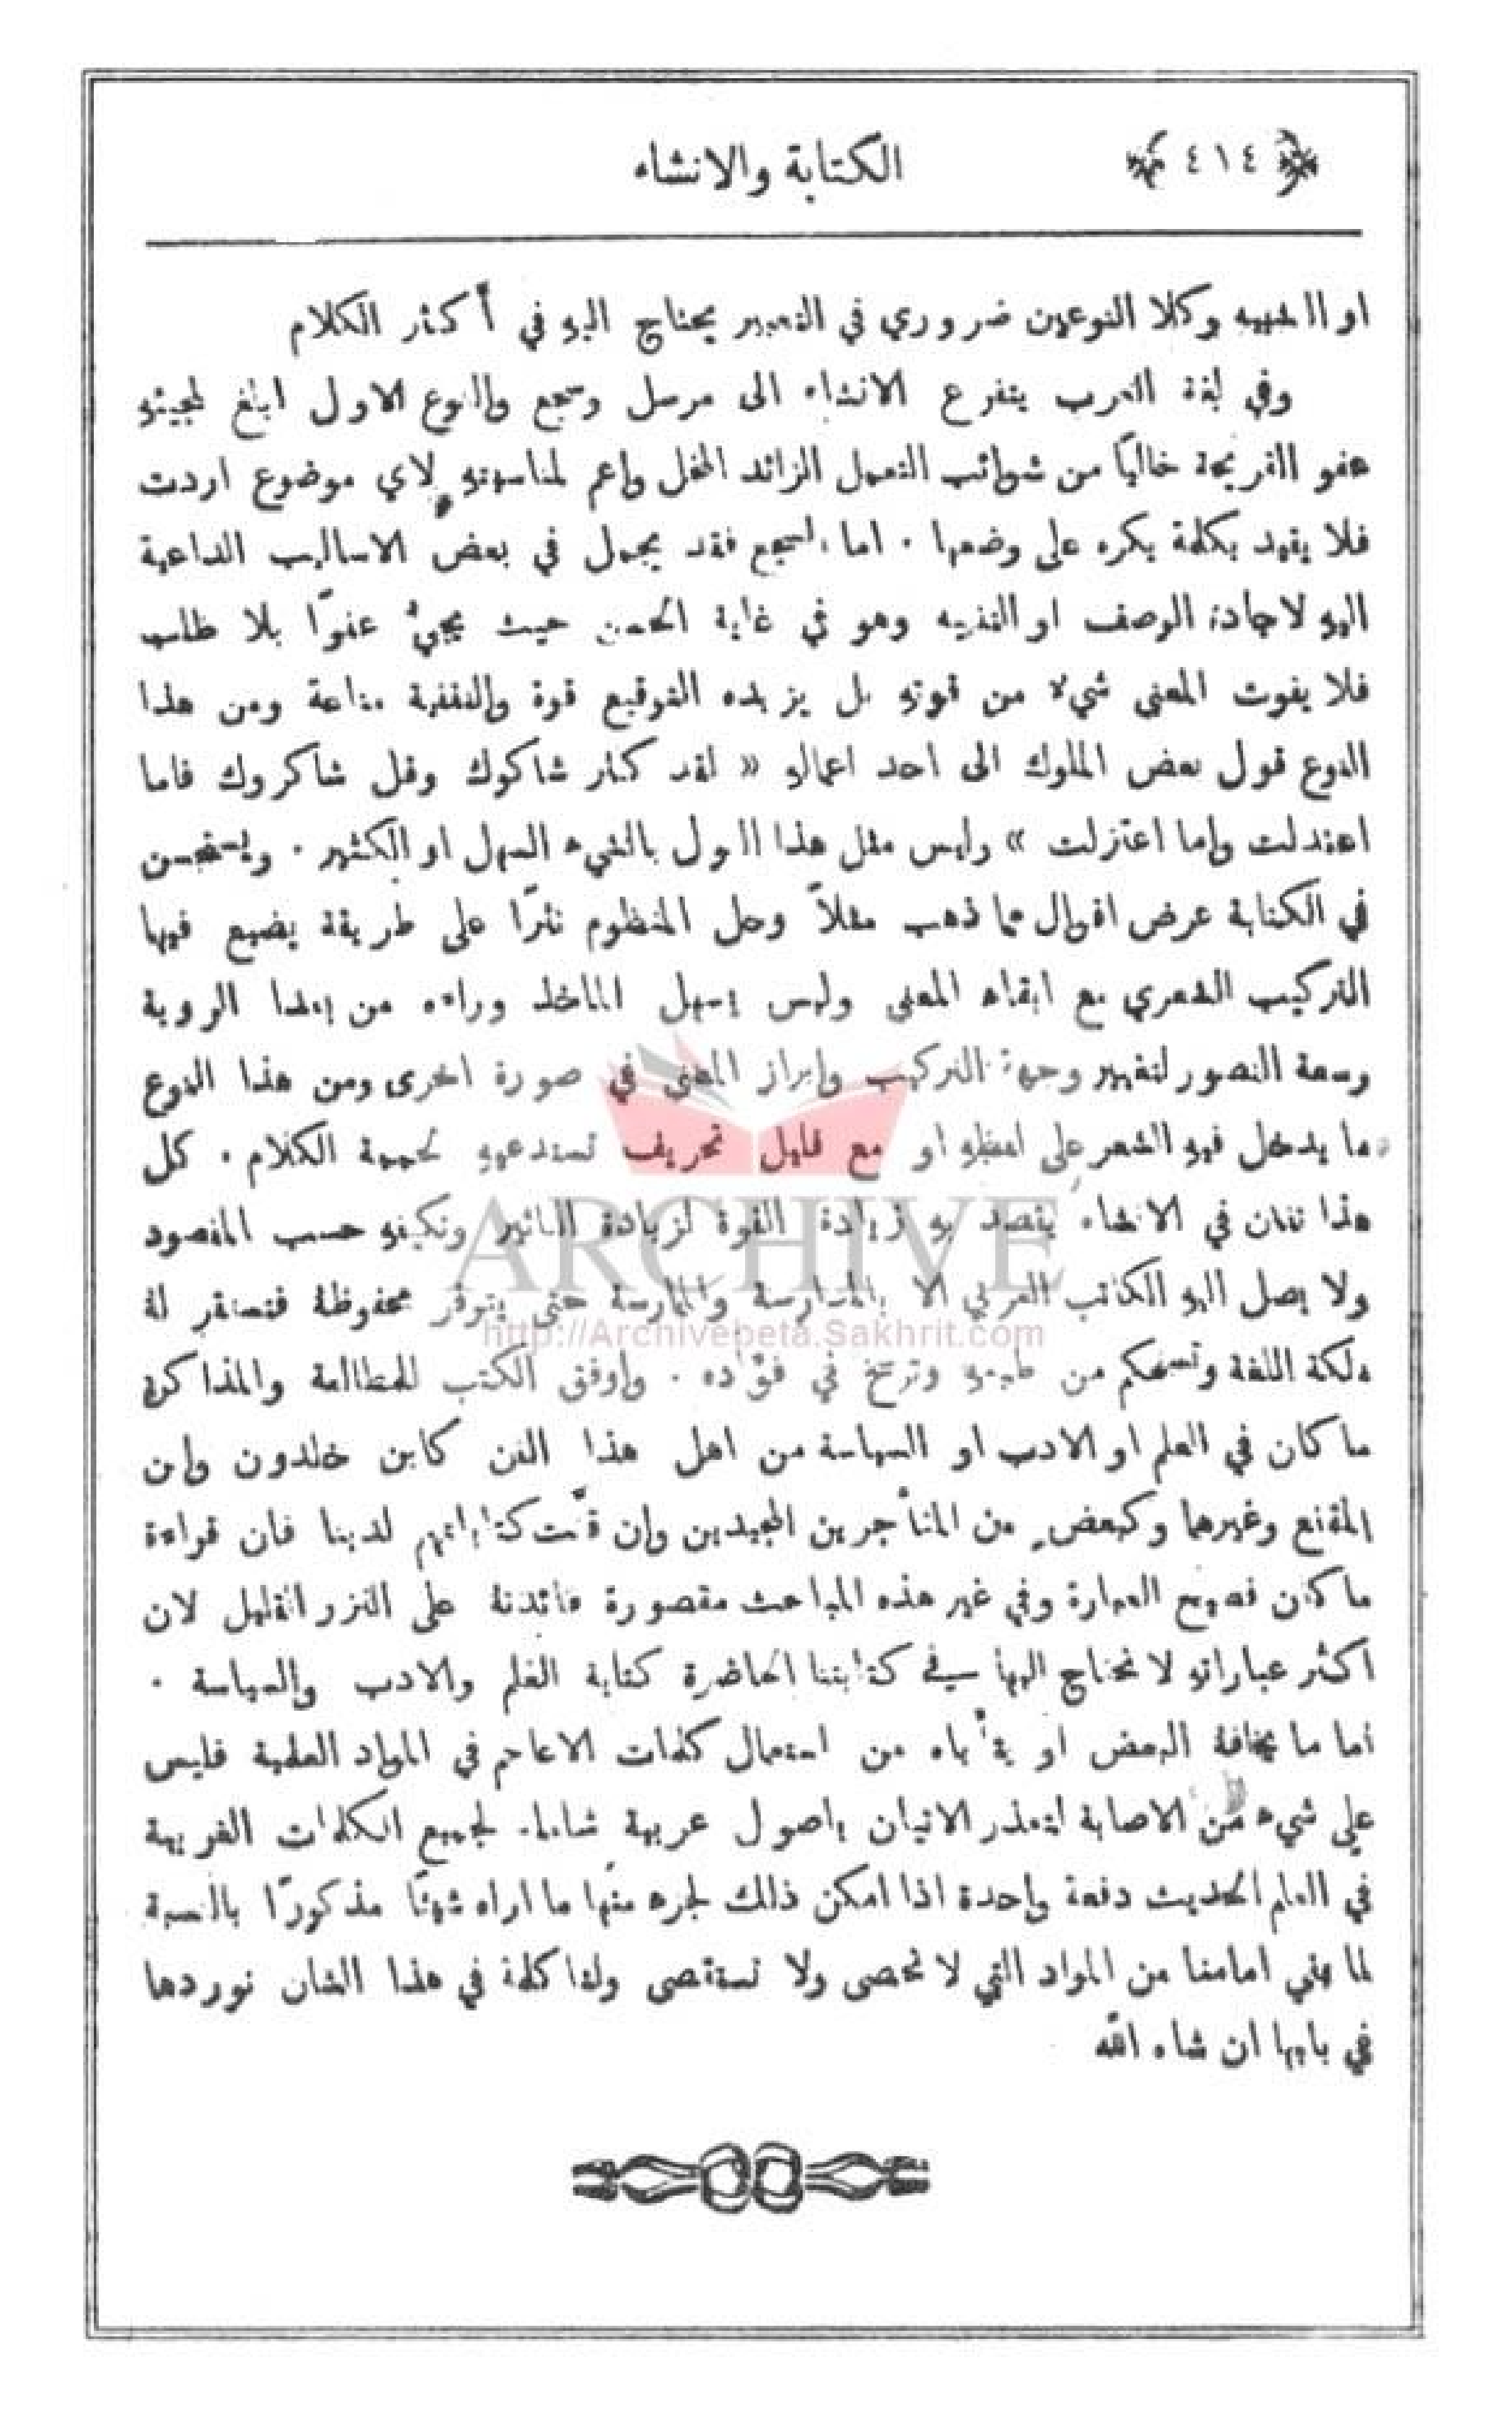 ﴿ ٤١٤ ﴾ الكتابة والانشاء
او التشبيه وكلا النوعين ضروري في التعبير يحتاج اليهِ في أكثر الكلام
وفي لغة العرب يتفرع الانشاء الى مرسل وسجع والنوع الاول ابلغ لمجيئهِ
عفو القريحة خاليًا من شوائب التعمل الزائد المخل واعم لمناسبتهِ لاي موضوع اردت
فلا يقيد بكلمة يكره على وضعها . اما السجع فقد يجمل في بعض الاساليب الداعية
اليهِ لاجادة الوصف او التنبيه وهو في غاية الحسن حيث يجيءُ عفوًا بلا طلب
فلا يفوت المعنى شيء من قوتهِ بل يزيده التوقيع قوة والتقفية مناعة ومن هذا
النوع قول بعض الملوك الى احد اعمالهِ « لقد كثر شاكوك وقل شاكروك فاما
اعتدلت واما اعتزلت » وليس مثل هذا القول بالشيء السهل او الكثير . ويستحسن
في الكتابة عرض اقوال مما ذهب مثلاً وحل المنظوم نثرًا على طريقة يضيع فيها
التركيب الشعري مع ابقاء المعنى وليس يسهل الماخذ وراءه من الروية
وسعة التصور لتغيير وجهة التركيب وابراز المعنى في صورة اخرى ومن هذا النوع
ما يدخل فيهِ الشعر على لفظهِ او مع قليل تحريف تستدعيهِ لحمة الكلام . كل
هذا تفنن في الانشاء يقصد بهِ زيادة القوة لزيادة التاثير وتمكينهِ حسب المقصود
ولا يصل اليهِ الكاتب العربي الا بالمدارسة والممارسة حتى يتوفر محفوظة فتستقر لهُ
ملكة اللغة وتستحكم من طبعهِ وترسخ في فؤاده . واوفق الكتب للمطالعة والمذاكرة
ما كان في العلم او الادب او السياسة من اهل هذا الفن كابن خلدون وابن
المقفع وغيرهما وكبعضٍ من المتأخرين المجيدين وان قلّت كتاباتهم لدينا فان قراءة
ما كان فصيح العبارة وفي غير هذه المباحث مقصورة فائدتهُ على النزر القليل لان
اكثر عباراتهِ لا نحتاج اليها في كتابتنا الحاضرة كتابة العلم والادب والسياسة .
اما ما يخافهُ البعض او يتأباه من استعمال كلمات الاعاجم في المواد العلمية فليس
على شيء من الاصابة لتعذر الاتيان باصول عربية شاملة لجميع الكلمات الغريبة
في العلم الحديث دفعة واحدة اذا امكن ذلك لجزء منها ما اراه شيئًا مذكورًا بالنسبة
لما بقي امامنا من المواد التي لا تحصى ولا تستقصى ولنا كلمة في هذا الشان نوردها
في بابها ان شاء الله
ARCHIVE
http://Archivebeta.Sakhrit.com